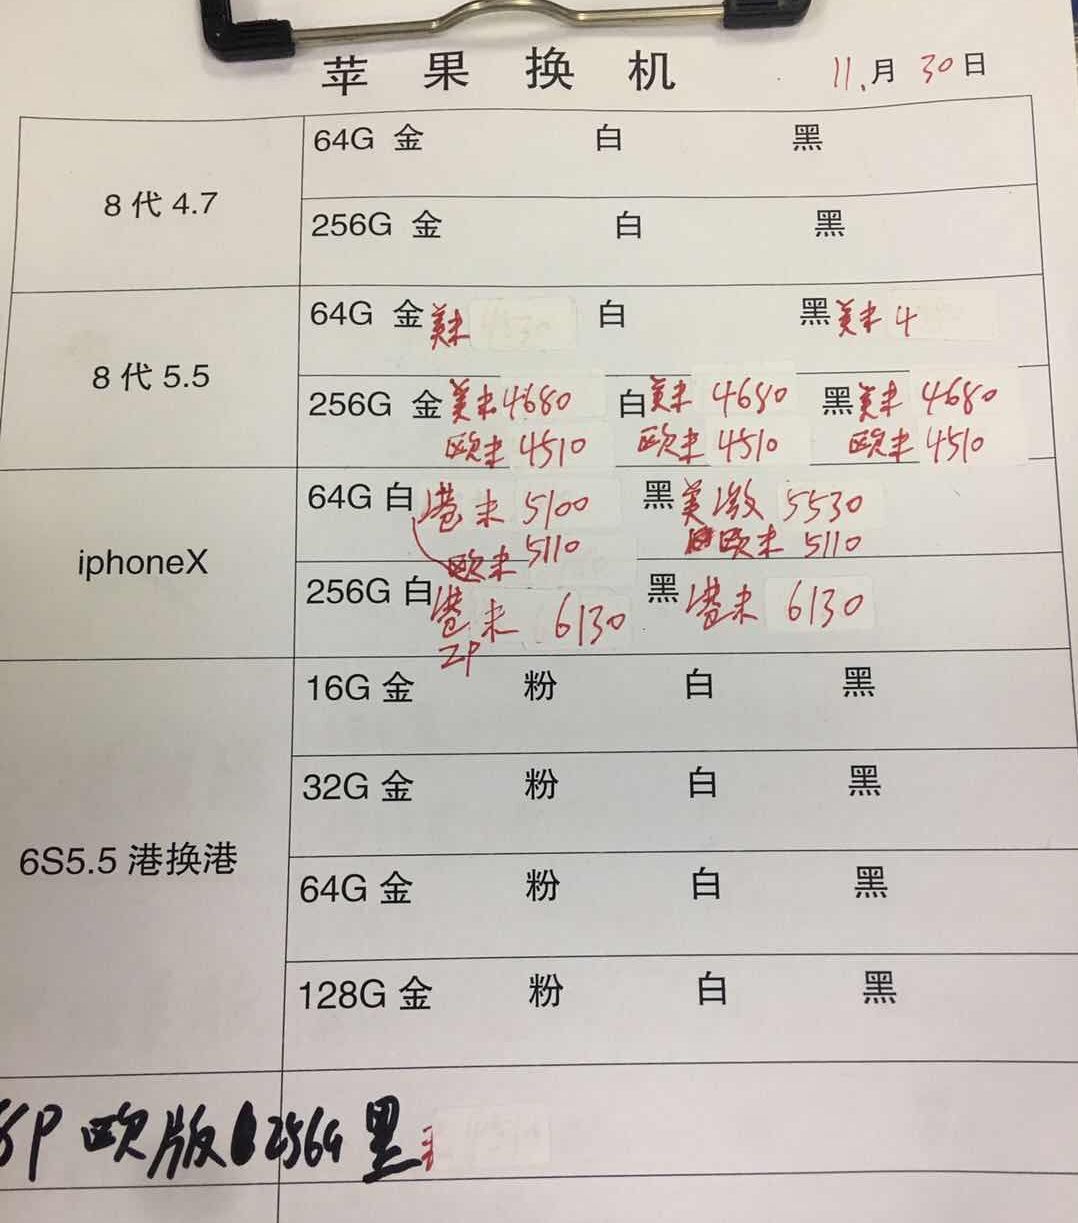 苹果换机 11.月30日
8代4.7
64G 金 白 黑
256G 金 白 黑
8代5.5
64G 金 美未 白 黑 美未 4
256G 金 美未 4680 白 美未 4680 黑 美未 4680
欧未 4510 欧未 4510 欧未 4510
iphoneX
64G 白 港未 5100 黑 美激 5530
欧未 5110 欧未 5110
256G 白 港未 6130 黑 港未 6130
ZP
6S5.5 港换港
16G 金 粉 白 黑
32G 金 粉 白 黑
64G 金 粉 白 黑
128G 金 粉 白 黑
8P 欧版 256G 黑